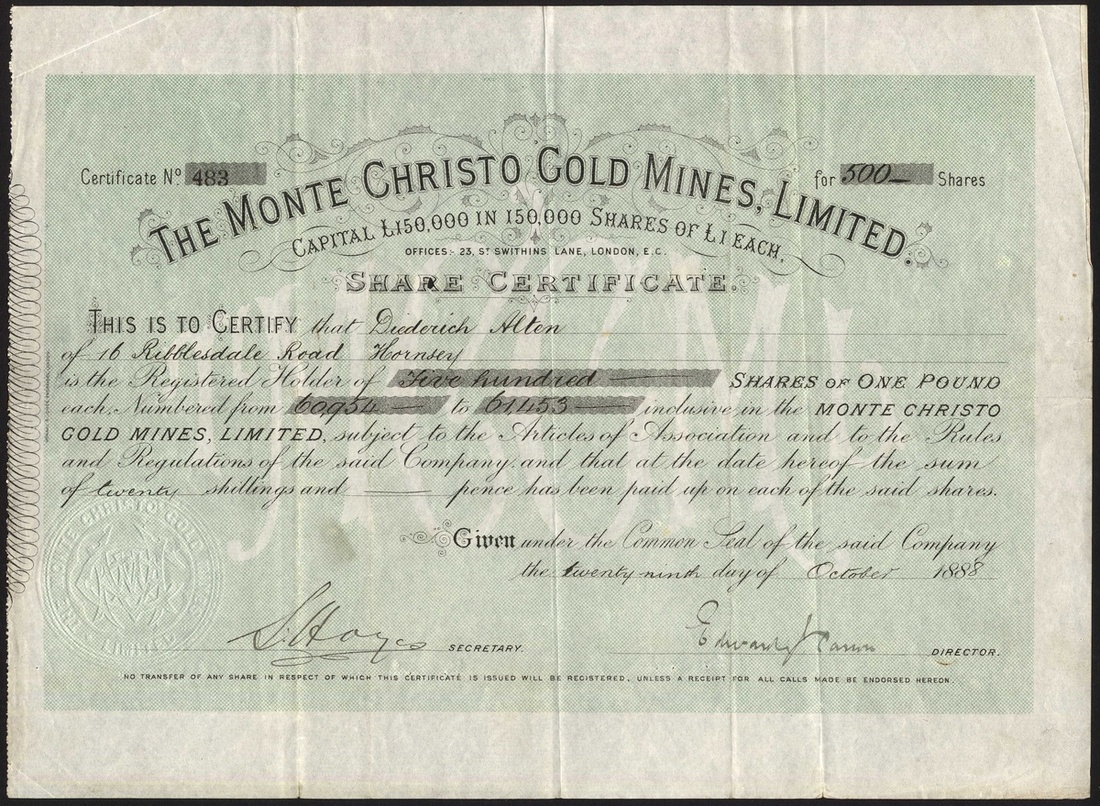 Certificate No. 483
for 500 Shares
THE MONTE CHRISTO GOLD MINES, LIMITED.
CAPITAL £150,000 IN 150,000 SHARES OF £1 EACH,
OFFICES:- 23, ST SWITHINS LANE, LONDON, E.C.
SHARE CERTIFICATE.
THIS IS TO CERTIFY that Diederich Alten
of 16 Ribblesdale Road Hornsey
is the Registered Holder of Five hundred SHARES OF ONE POUND
each, Numbered from 60,954 to 61,453 inclusive, in the MONTE CHRISTO
GOLD MINES, LIMITED, subject to the Articles of Association and to the Rules
and Regulations of the said Company, and that at the date hereof the sum
of twenty shillings and — pence has been paid up on each of the said shares.
Given under the Common Seal of the said Company
the twenty-ninth day of October 1888
S. Hayes SECRETARY.
Edward J DIRECTOR.
NO TRANSFER OF ANY SHARE IN RESPECT OF WHICH THIS CERTIFICATE IS ISSUED WILL BE REGISTERED, UNLESS A RECEIPT FOR ALL CALLS MADE BE ENDORSED HEREON.